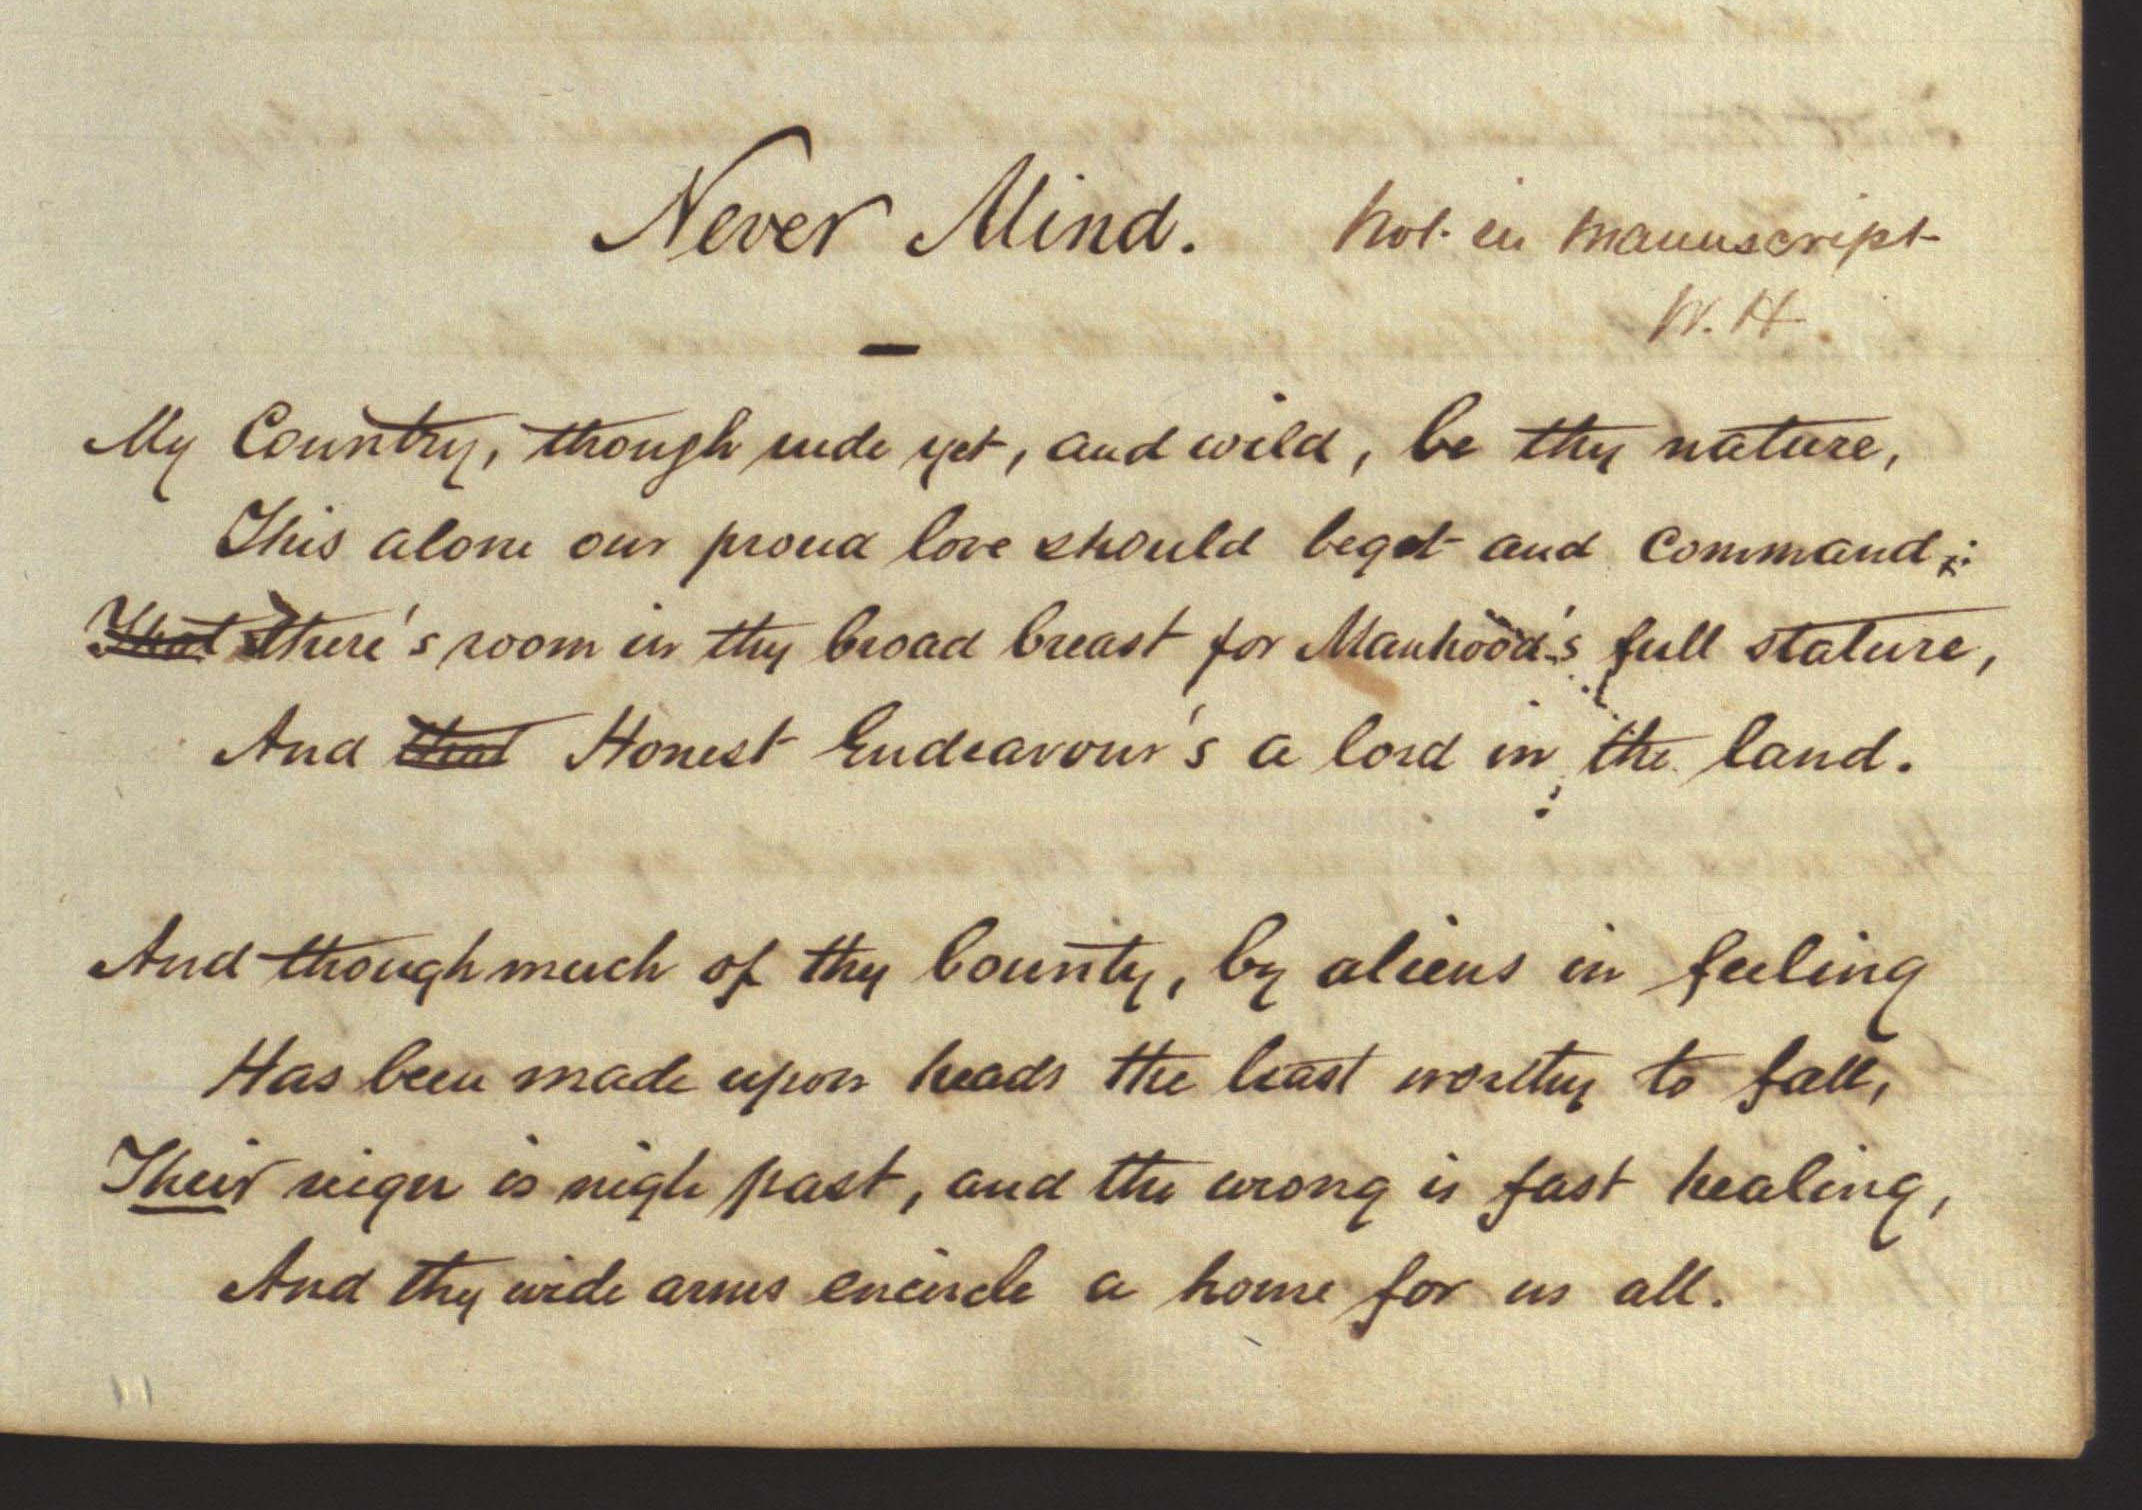 Never Mind. Not in manuscript
W. H.
My Country, though rude yet, and wild, be thy nature,
This alone our proud love should beget and command;
That there's room in thy broad breast for Manhood's full stature,
And that Honest Endeavour's a lord in the land.
And though much of thy bounty, by aliens in feeling
Has been made upon heads the least worthy to fall,
Their reign is nigh past, and the wrong is fast healing,
And thy wide arms encircle a home for us all.